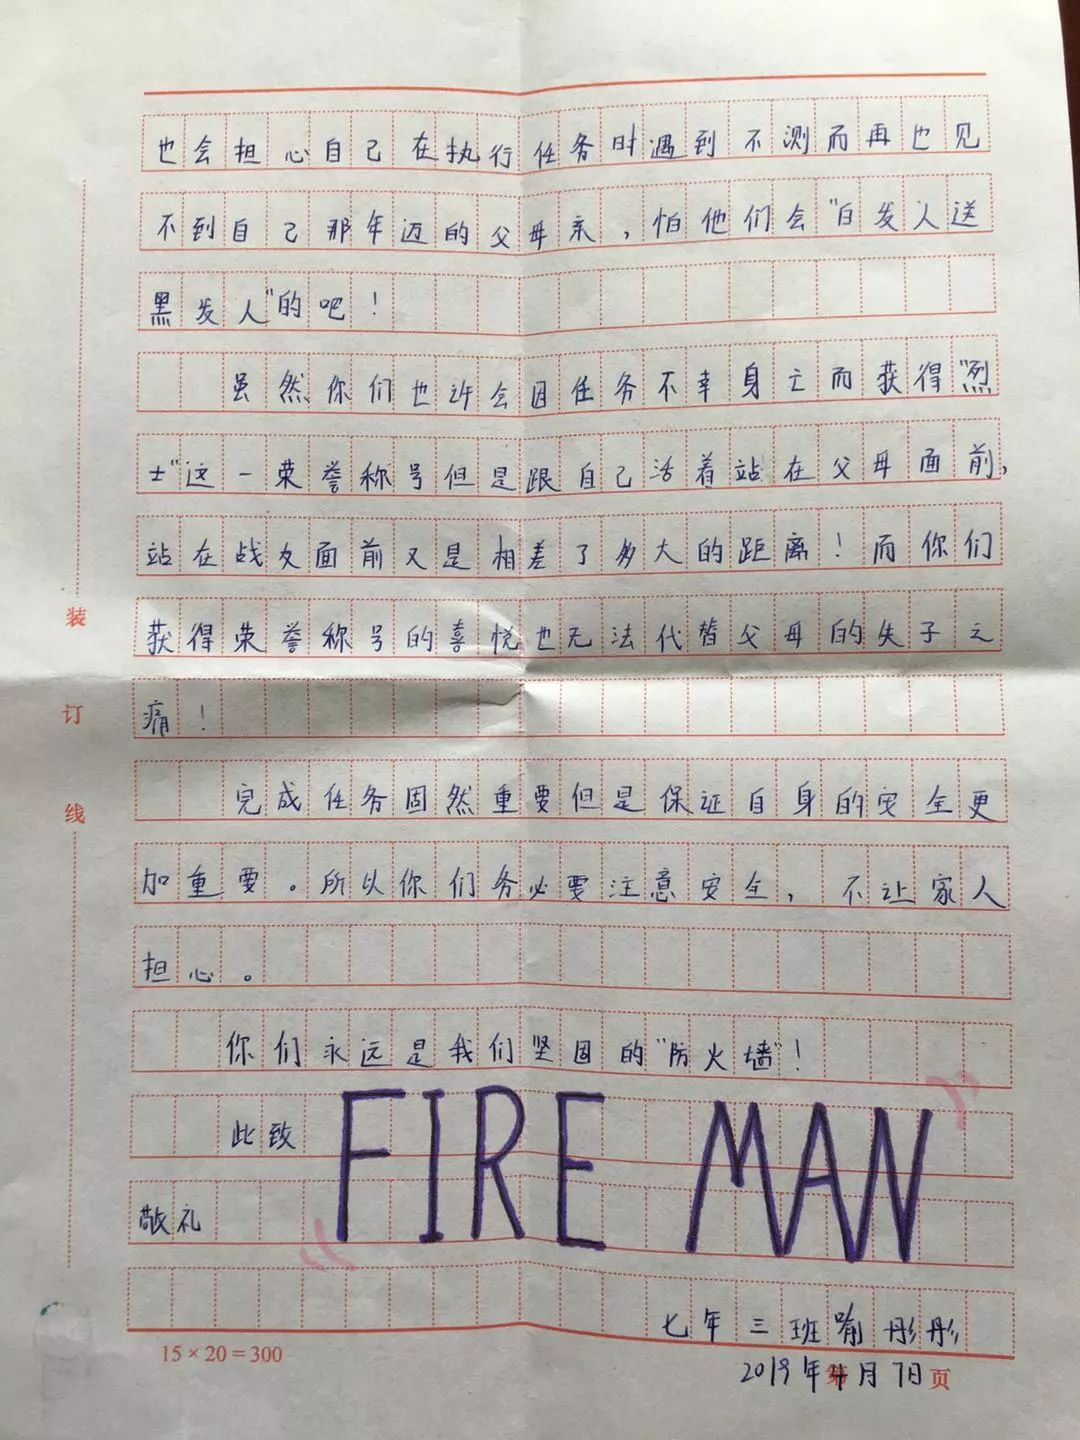 也会担心自己在执行任务时遇到不测而再也见
不到自己那年迈的父母亲，怕他们会“白发人送
黑发人”的吧！
虽然你们也许会因任务不幸身亡而获得“烈
士”这一荣誉称号但是跟自己活着站在父母面前，
站在战友面前又是相差了多大的距离！而你们
获得荣誉称号的喜悦也无法代替父母的失子之
痛！
完成任务固然重要但是保证自身的安全更
加重要。所以你们务必要注意安全，不让家人
担心。
你们永远是我们坚固的“防火墙”！
此致
FIRE MAN
敬礼
七年三班喻彤彤
15×20=300
2019年4月7日
第 页
装
订
线